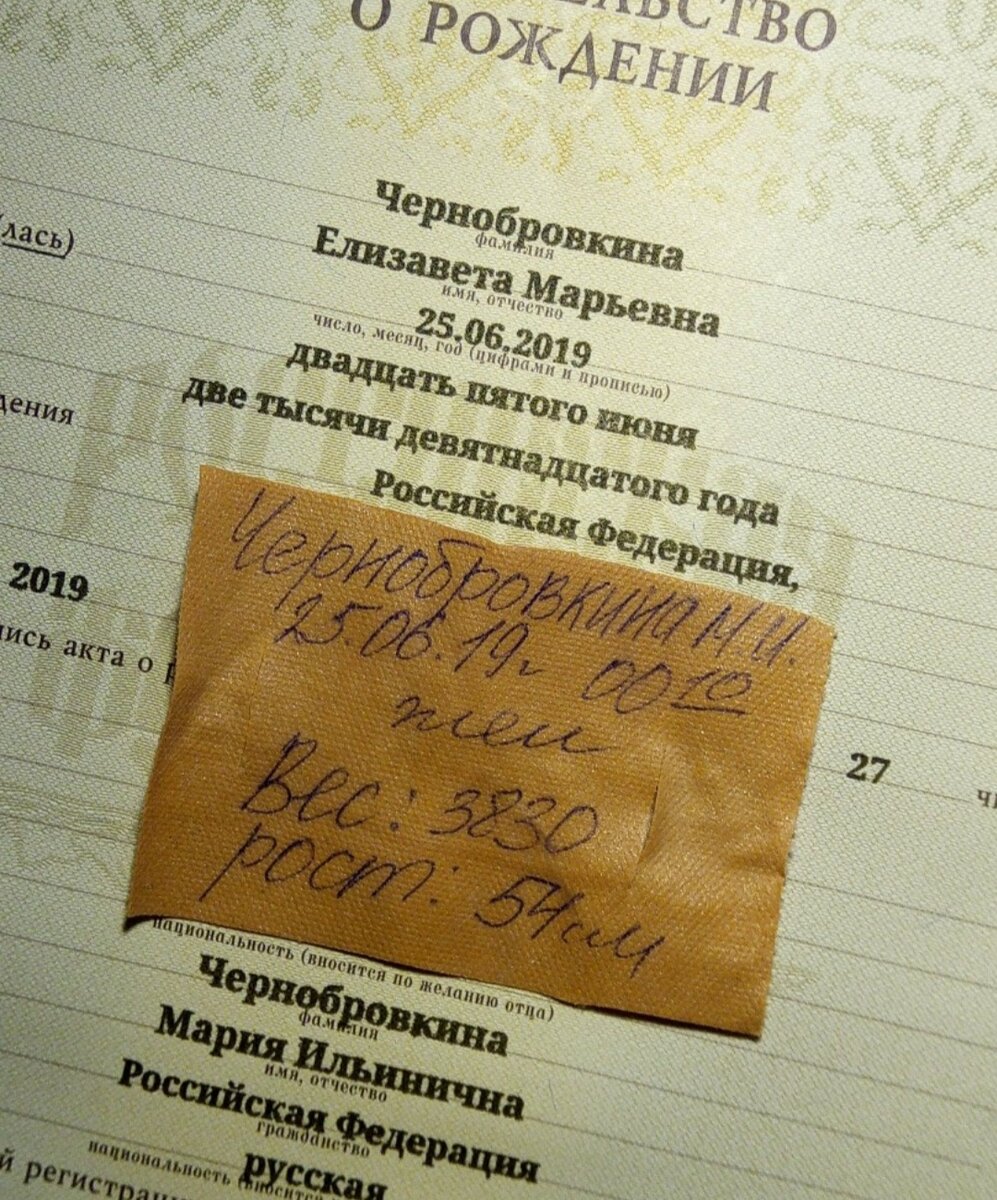 О РОЖДЕНИИ
Чернобровкина
фамилия
лась)
Елизавета Марьевна
имя, отчество
25.06.2019
число, месяц, год (цифрами и прописью)
двадцать пятого июня
дения
две тысячи девятнадцатого года
Российская Федерация,
Чернобровкина М.И.
25.06.19г 00 10
жен
Вес: 3830
рост: 54см
2019
ись акта о р
27
национальность (вносится по желанию отца)
Чернобровкина
фамилия
Мария Ильинична
имя, отчество
Российская Федерация
гражданство
русская
национальность (вносится
й регистрац